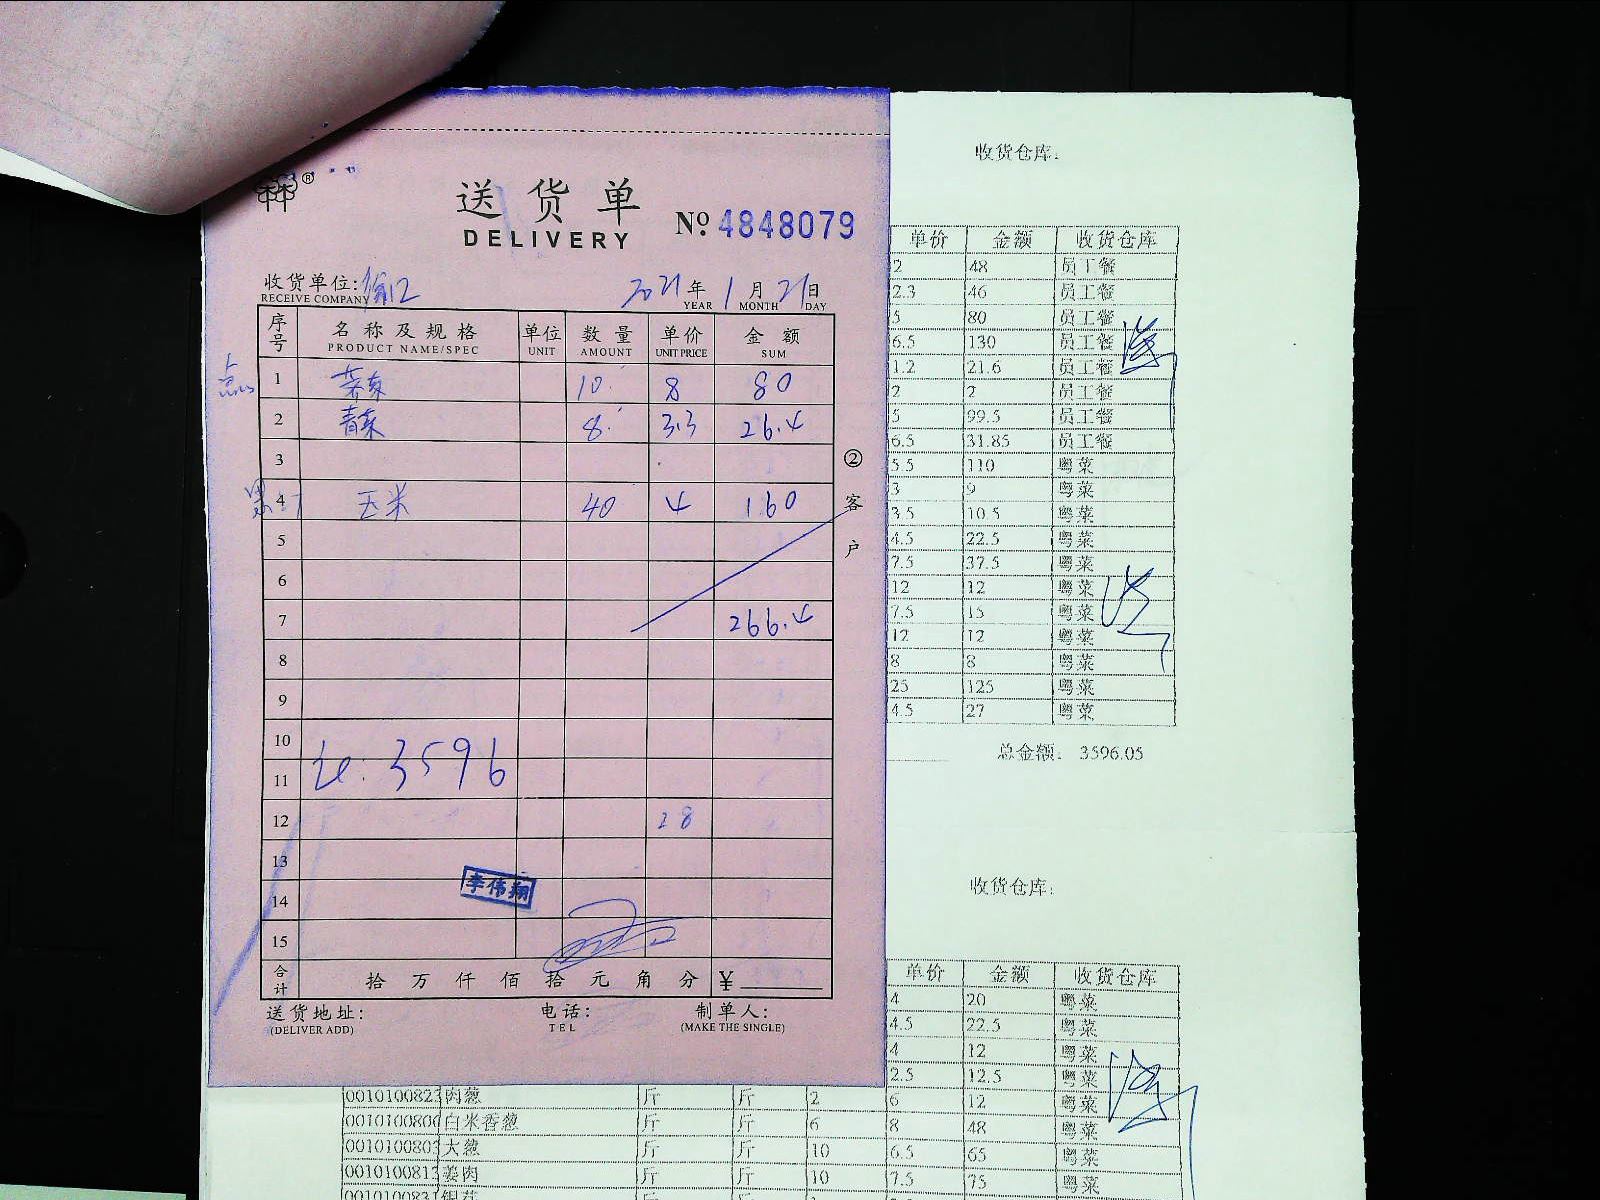 送货单
DELIVERY
№ 4848079
收货单位:
RECEIVE COMPANY
2021年 1月 21日
YEAR MONTH DAY
序号 名称及规格 单位 数量 单价 金额
PRODUCT NAME/SPEC UNIT AMOUNT UNIT PRICE SUM
1 10 8 80
2 青菜 8 3.3 26.4
3
4 玉米 40 4 160
5
6
7 266.4
8
9
10
11 3596
12 28
13
14
李伟翔
15
合计 拾 万 仟 佰 拾 元 角 分 ¥
送货地址: 电话: 制单人:
(DELIVER ADD) TEL (MAKE THE SINGLE)
②客户
收货仓库:
单价 金额 收货仓库
2 48 员工餐
2.3 46 员工餐
5 80 员工餐
6.5 130 员工餐
1.2 21.6 员工餐
2 2 员工餐
5 99.5 员工餐
6.5 31.85 员工餐
5.5 110 粤菜
3 9 粤菜
3.5 10.5 粤菜
4.5 22.5 粤菜
7.5 37.5 粤菜
12 12 粤菜
7.5 15 粤菜
12 12 粤菜
8 8 粤菜
25 125 粤菜
4.5 27 粤菜
总金额: 3596.05
收货仓库:
单价 金额 收货仓库
4 20 粤菜
4.5 22.5 粤菜
4 12 粤菜
2.5 12.5 粤菜
0010100823 肉葱 斤 斤 2 6 12 粤菜
0010100800 白米香葱 斤 斤 6 8 48 粤菜
0010100803 大葱 斤 斤 10 6.5 65 粤菜
0010100813 姜肉 斤 斤 10 7.5 75 粤菜